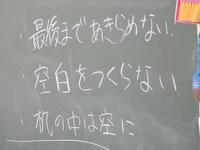 ・最後まであきらめない.
・空白をつくらない
・机の中は空に